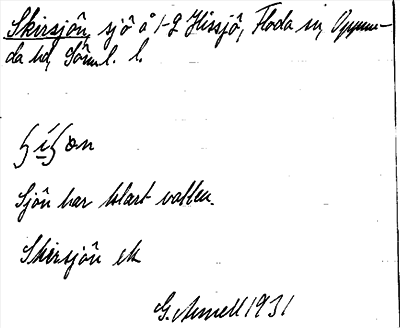 Skirsjön, sjö å 1-2 Jissjö, Floda sn, Oppun-
da hd, Söml. l.
Sjön har klart vatten.
Skirsjön ek
G. Arnell 1931